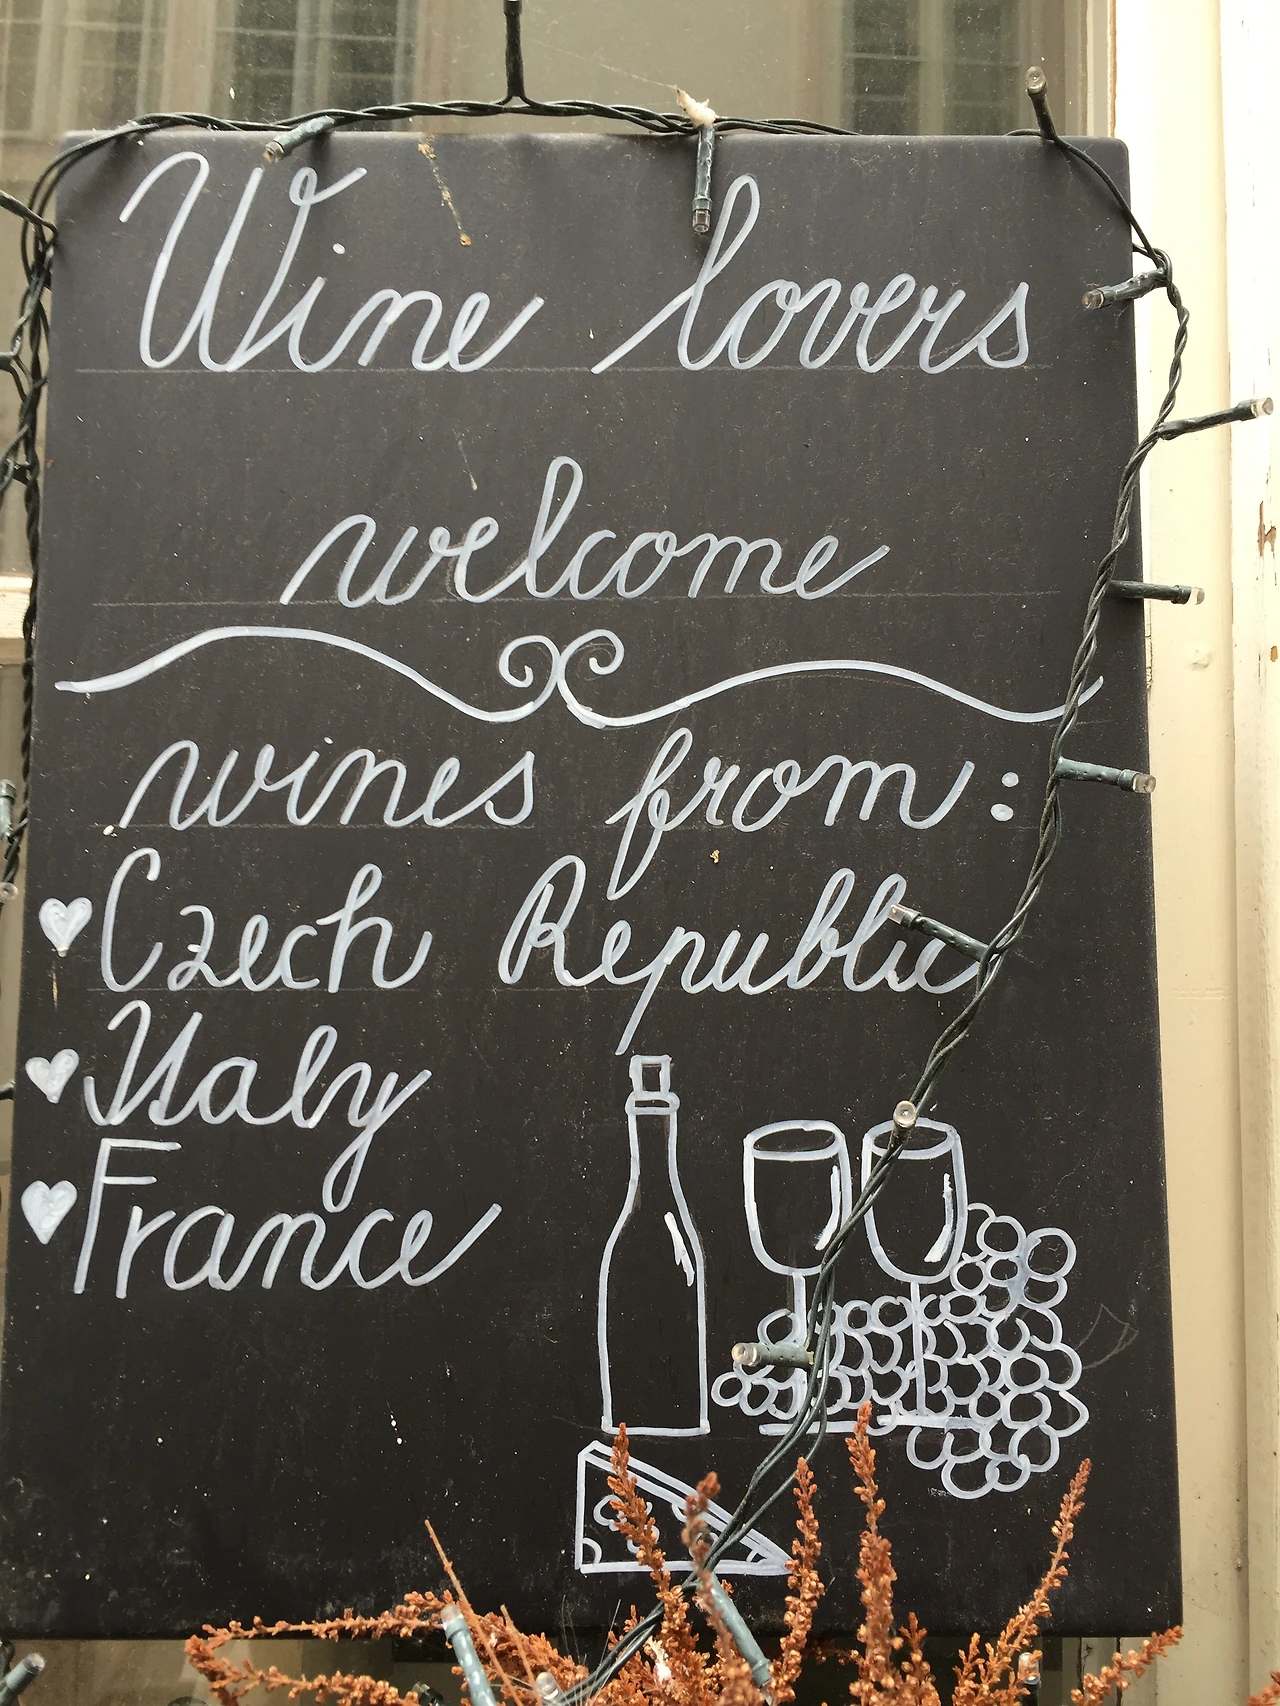 Wine lovers
welcome
wines from:
Czech Republic
Italy
France